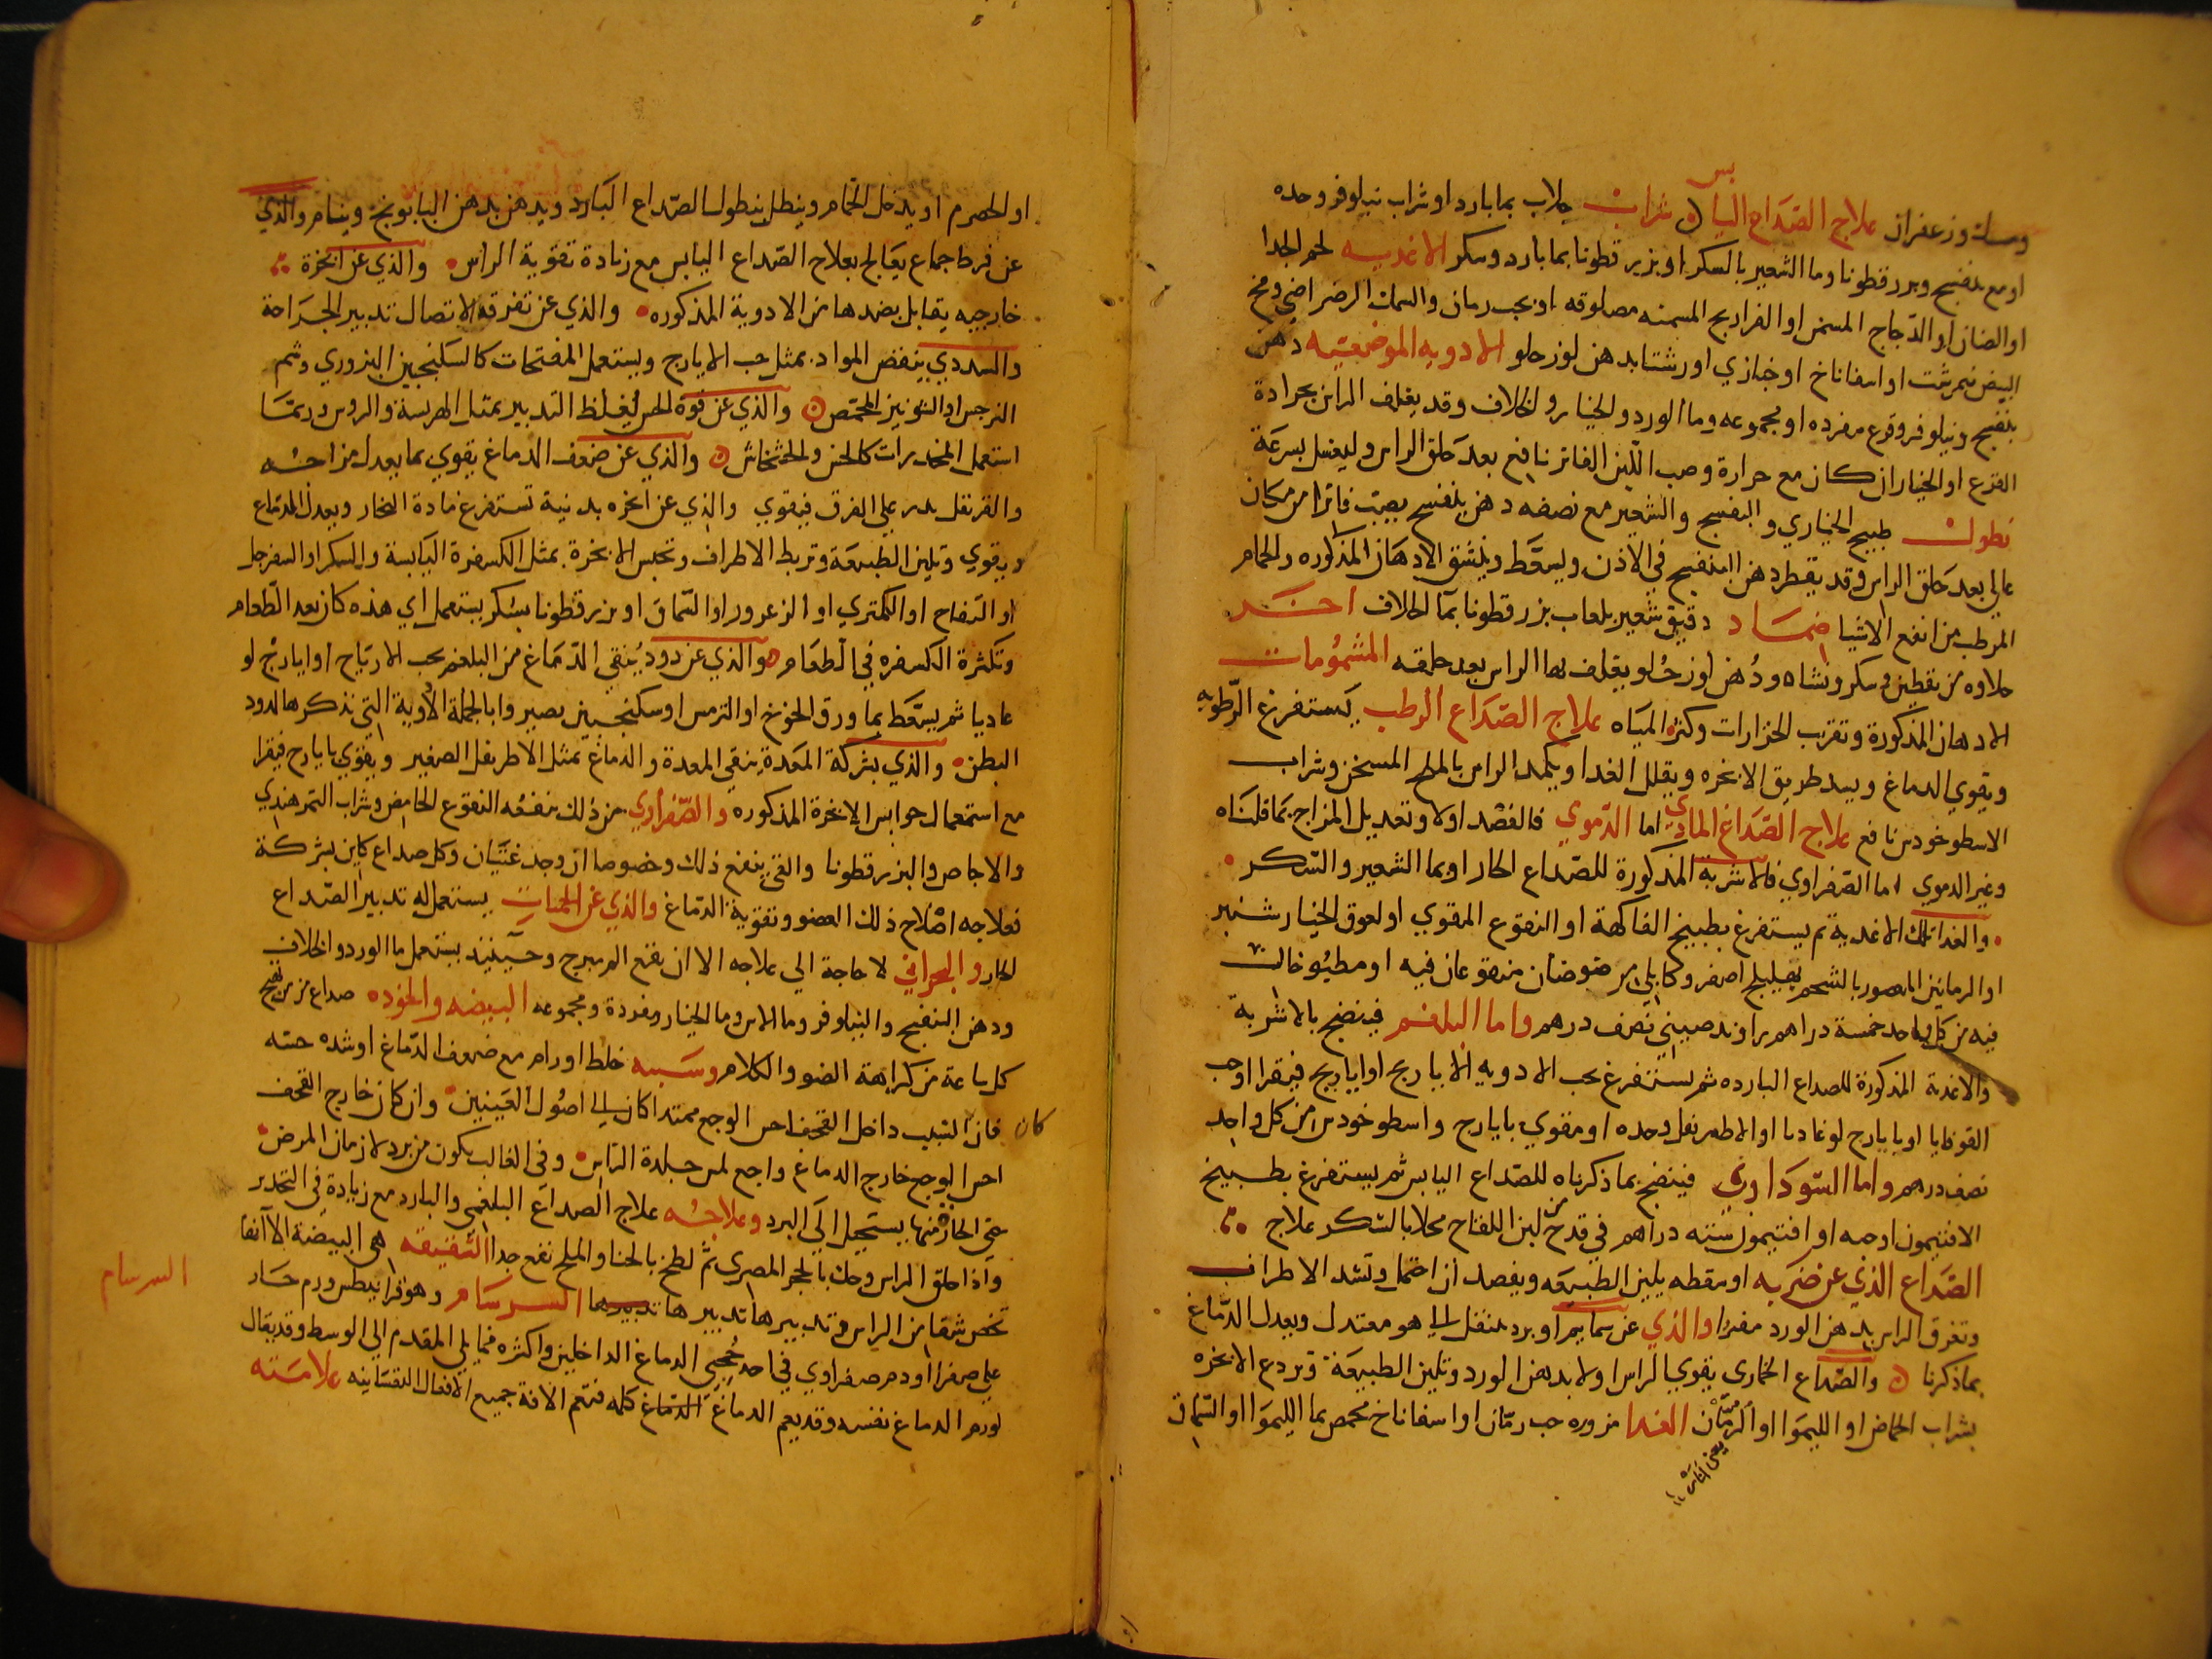 ومسك وزعفران علاج الصداع اليابس شراب جلاب بما بارد او شراب نيلوفر وحده
او مع بنفسج وبزر قطونا وما الشعير بالسكر او بزر قطونا بما بارد وسكر الاغديه لحم الجدا
او الضان او الدجاج المسمن او الفراريج المسمنه مصلوقه او بحب رمان والسمك الرضراضي ومخ
البيض نيمرشت او اسفاناخ او خبازي او رشتا بدهن لوز حلو الادويه الموضعيه دهن
بنفسج ونيلوفر وقرع مفرده او مجموعه وما الورد والخيار والخلاف وقد يغلف الراس بجرادة
القرع او الخيار ان كان مع حرارة وصب اللبن الفاتر نافع بعد حلق الراس وليغسل بسرعة
نطول طبيخ الخبازي والبنفسج والشعير مع نصفه دهن بنفسج يصب فاترا من مكان
عالي بعد حلق الراس وقد يقطر دهن البنفسج في الاذن ويسعط وينشق الادهان المذكوره والحمام
المرطب من انفع الاشيا ضماد دقيق شعير بلعاب بزر قطونا بما الخلاف اخر
حلاوه من يقطين وسكر ونشاه ودهن لوز حلو يغلف بها الراس بعد حلقه المشمومات
الادهان المذكورة وتقرب الخرارات وكثرة المياه علاج الصداع الرطب يستفرغ الرطوبه
ويقوي الدماغ ويسد طريق الابخره ويقلل الغدا ويكمد الراس بالملح المسخن وشراب
الاسطوخودس نافع علاج الصداع المادي اما الدموي فالفصد اولا وتعديل المزاج بما قلناه
وغير الدموي اما الصفراوي فالاشربة المذكورة للصداع الحار او بما الشعير والسكر
والغدا تلك الاغدية ثم يستفرغ بطبيخ الفاكهة او النقوع المقوي او لعوق الخيار شنبر
او الرمانين المعصور بالشحم بهليلج اصفر وكابلي مرضوضان منقوعان فيه او مطبوخان
فيه من كل واحد خمسة دراهم براوند صيني نصف درهم واما البلغم فينضج بالاشربة
والاغدية المذكورة للصداع البارده ثم يستفرغ بحب الادويه الايارج او ايارج فيقرا او حب
القوقايا او بايارج لوغاديا او الاطريفل وحده او مقوي بايارج واسطوخودس من كل واحد
نصف درهم واما السوداوي فينضج بما ذكرناه للصداع اليابس ثم يستفرغ بطبيخ
الافتيمون او حبه او افتيمون ستة دراهم في قدح من لبن اللقاح محلا بالسكر علاج
الصداع الذي عن ضربه او سقطه يلين الطبيعه ويفصد ان احتمل وتشد الاطراف
وتغرق الراس بدهن الورد مفترا والذي عن سمايم او برد ينتقل الى هو معتدل ويعدل الدماغ
بما ذكرنا والصداع الخماري يقوي الراس اولا بدهن الورد وتلين الطبيعة وتردع الابخره
بشراب الحماض او الليموا او الرمان الغدا مزوره حب رمان او اسفاناخ محمص بما الليموا او السماق
او الحصرم او يدخل الحمام وينطل بنطول الصداع البارد ويدهن بدهن البابونج وينام والذي
عن فرط جماع يعالج بعلاج الصداع اليابس مع زيادة تقوية الراس والذي عن ابخرة
خارجيه يقابل بضدها من الادوية المذكوره والذي عن تفرقة الاتصال تدبير الجراحة
والسددي ينفض المواد بمثل حب الايارج ويستعمل المفتحات كالسكنجبين البزوري وشم
النرجس او الشونيز المحمص والذي عن قوة الحس ليغلظ التدبير بمثل الهريسة والروس وربما
استعمل المخدرات كالخس والخشخاش والذي عن ضعف الدماغ يقوي بما يعدل مزاجه
والقرنفل يدر على الفرق فيقوي والذي عن ابخره بدنية تستفرغ مادة البخار ويعدل الدماغ
ويقوي وتلين الطبيعة وتربط الاطراف وتحبس الابخرة بمثل الكسفرة اليابسة والسكر او السفرجل
او التفاح او الكمثري او الزعرور او السماق او بزر قطونا بسكر يستعمل اي هذه كان بعد الطعام
وتكثرة الكسفره في الطعام والذي عن دود ينقي الدماغ من البلغم بحب الارياج او ايارج لو
غاديا ثم يسعط بما ورق الخوخ او الترمس او سكنجبين بصبر وابالجملة الادوية التي نذكرها لدود
البطن والذي بشركة المعدة ينقي المعدة والدماغ بمثل الاطريفل الصغير ويقوي بايارج فيقرا
مع استعمال حوابس الابخرة المذكوره والصفراوي من ذلك ينفعه النقوع الحامض وشراب التمر هندي
والاجاص والبزر قطونا والقي ينفع ذلك وخصوصا ان وجد غثيان وكل صداع كاين بشركة
فعلاجه اصلاح ذلك العضو وتقوية الدماغ والذي عن الحميات يستعمل له تدبير الصداع
الحار والبحراني لا حاجة الي علاجه الا ان يقع المبرح وحينيذ يستعمل ما الورد والخلاف
ودهن البنفسج والنيلوفر وما الاس وما الخيار مفردة ومجموعه البيضه والخوده صداع مزمن يهيج
كل ساعة من كراهة الضو والكلام وسببه خلط اورام مع ضعف الدماغ او شدة حسه
فان كان السبب داخل القحف احس الوجع ممتدا كان الى اصول العينين وان كان خارج القحف
احس الوجع خارج الدماغ واجع لمس جلدة الراس وفى الغالب يكون من برد لان زمان المرض
حتى الحار منها يستحيل الى البرد وعلاجه علاج الصداع البلغمي والبارد مع زيادة في التخدير
واذا حلق الراس وحك بالحجر المصري ثم لطخ بالحنا والملح نفع جدا الشقيقه هي البيضة الا انها
تخص شقا من الراس وتدبيرها تدبيرها السرسام وهو قرانيطس ورم حار
السرسام
عن صفرا او دم صفراوي في احد حجبي الدماغ الداخلين واكثره فيما يلي المقدم الي الوسط وقد يقال
لورم الدماغ نفسه وقد يعم الدماغ الدماغ كله فتعم الافة جميع الافعال النفسانيه علامته